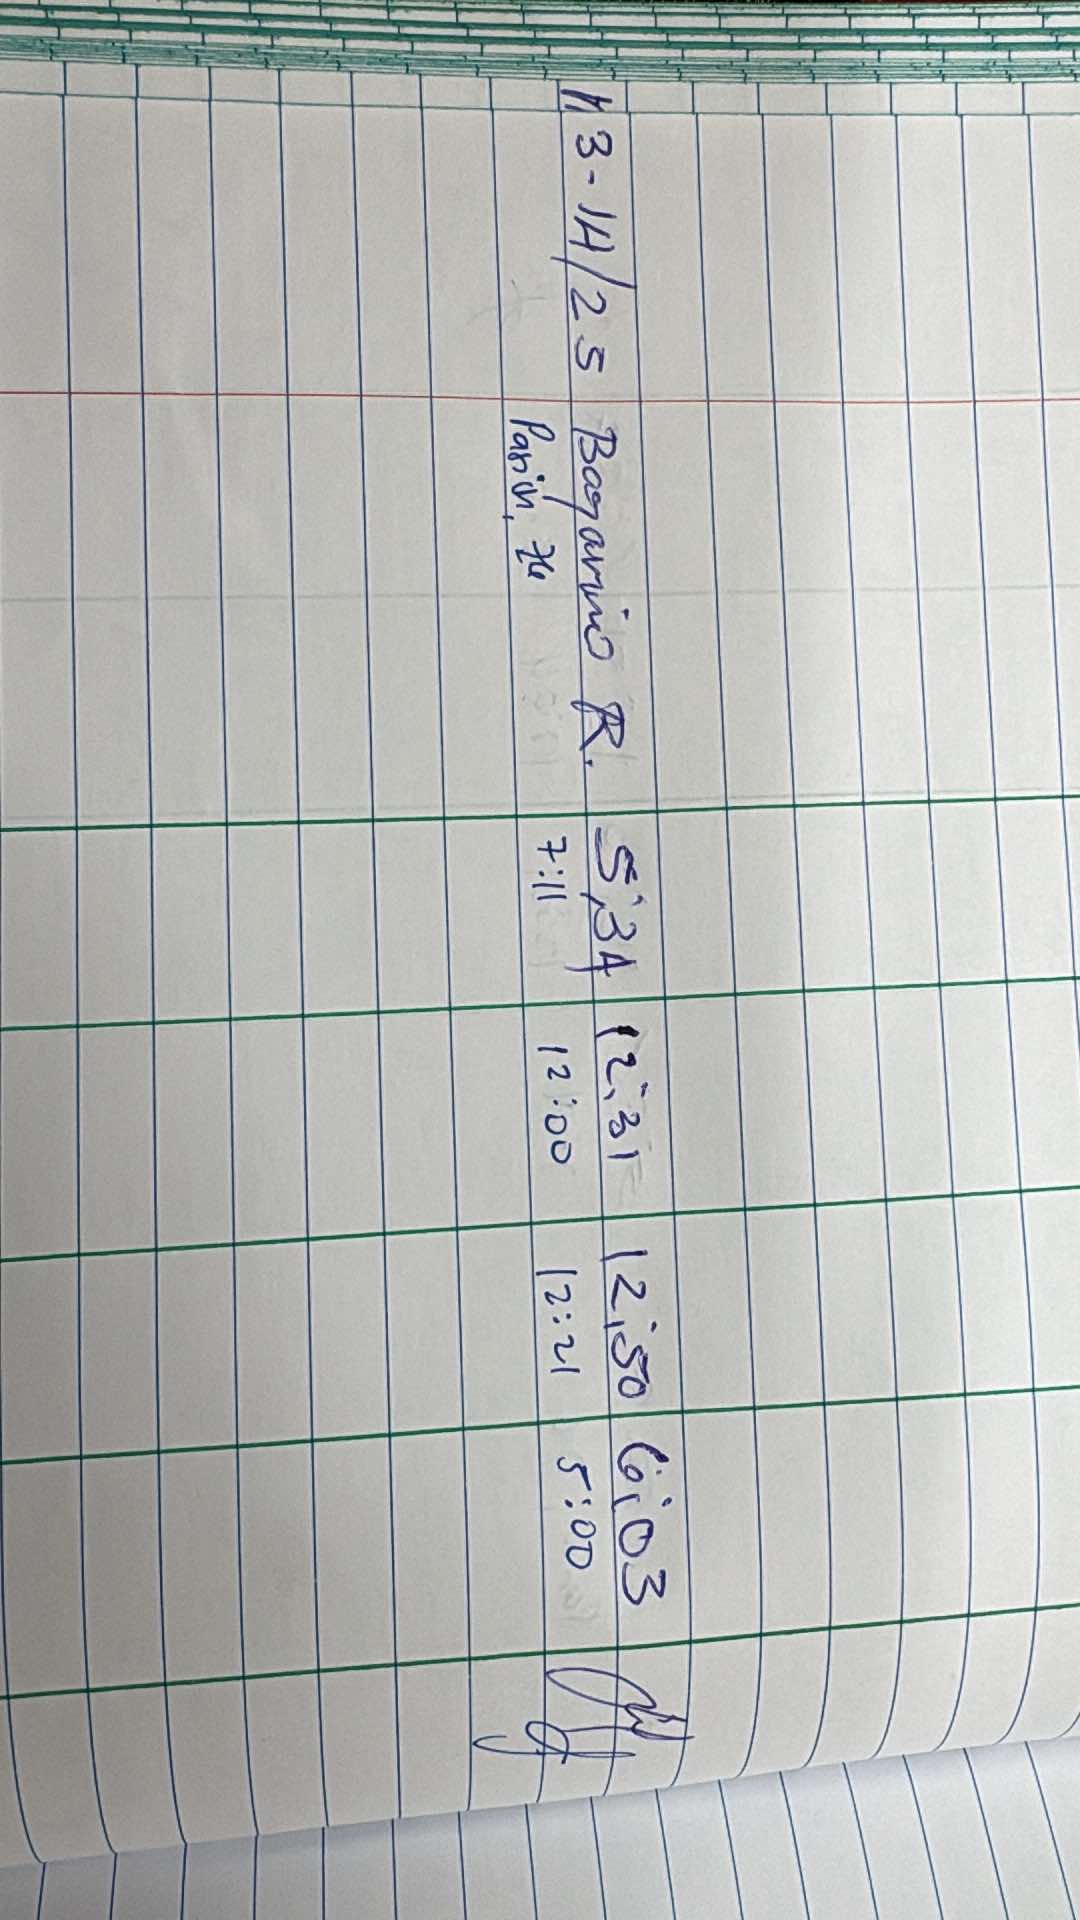 3-14/25 Bagarino R. 5:34 12:31 12:50 6:03
7:11 12:00 12:21 5:00